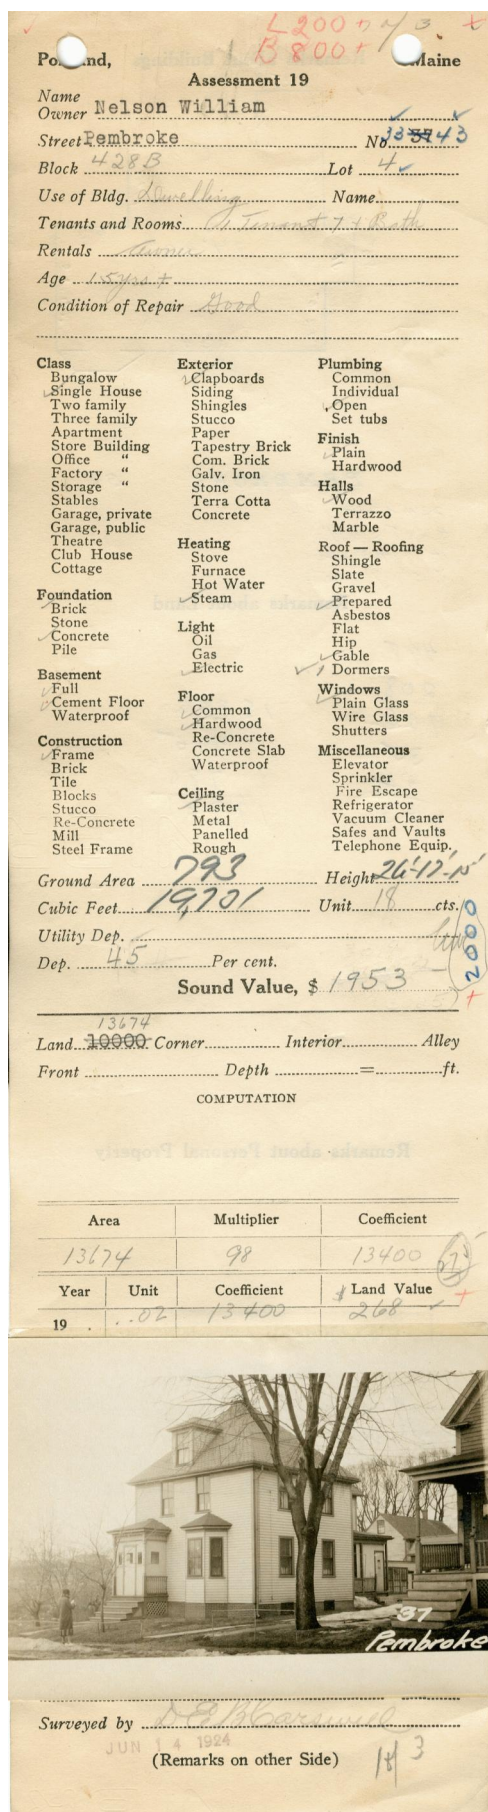 L 200 +
B 800 +
Portland, Maine
Assessment 19
Name
Owner Nelson William
Street Pembroke No. 33 37 43
Block 428B Lot 4
Use of Bldg. Dwelling Name
Tenants and Rooms 1 Tenant 7 + Bath
Rentals Owner
Age 15 yrs +
Condition of Repair Good
Class
Bungalow
Single House
Two family
Three family
Apartment
Store Building
Office "
Factory "
Storage "
Stables
Garage, private
Garage, public
Theatre
Club House
Cottage
Foundation
Brick
Stone
Concrete
Pile
Basement
Full
Cement Floor
Waterproof
Construction
Frame
Brick
Tile
Blocks
Stucco
Re-Concrete
Mill
Steel Frame
Exterior
Clapboards
Siding
Shingles
Stucco
Paper
Tapestry Brick
Com. Brick
Galv. Iron
Stone
Terra Cotta
Concrete
Heating
Stove
Furnace
Hot Water
Steam
Light
Oil
Gas
Electric
Floor
Common
Hardwood
Re-Concrete
Concrete Slab
Waterproof
Ceiling
Plaster
Metal
Panelled
Rough
Plumbing
Common
Individual
Open
Set tubs
Finish
Plain
Hardwood
Halls
Wood
Terrazzo
Marble
Roof — Roofing
Shingle
Slate
Gravel
Prepared
Asbestos
Flat
Hip
Gable
1 Dormers
Windows
Plain Glass
Wire Glass
Shutters
Miscellaneous
Elevator
Sprinkler
Fire Escape
Refrigerator
Vacuum Cleaner
Safes and Vaults
Telephone Equip.
Ground Area 793 Height 26'-17'-15'
Cubic Feet 19,701 Unit 18 cts.
Utility Dep.
Dep. 45 Per cent.
2000
Sound Value, $ 1953
13674
Land 10000 Corner Interior Alley
Front Depth = ft.
COMPUTATION
Area Multiplier Coefficient
13674 98 13400
Year Unit Coefficient $ Land Value
19 .02 13400 268
37
Pembroke
Surveyed by
JUN 14 1924
(Remarks on other Side)